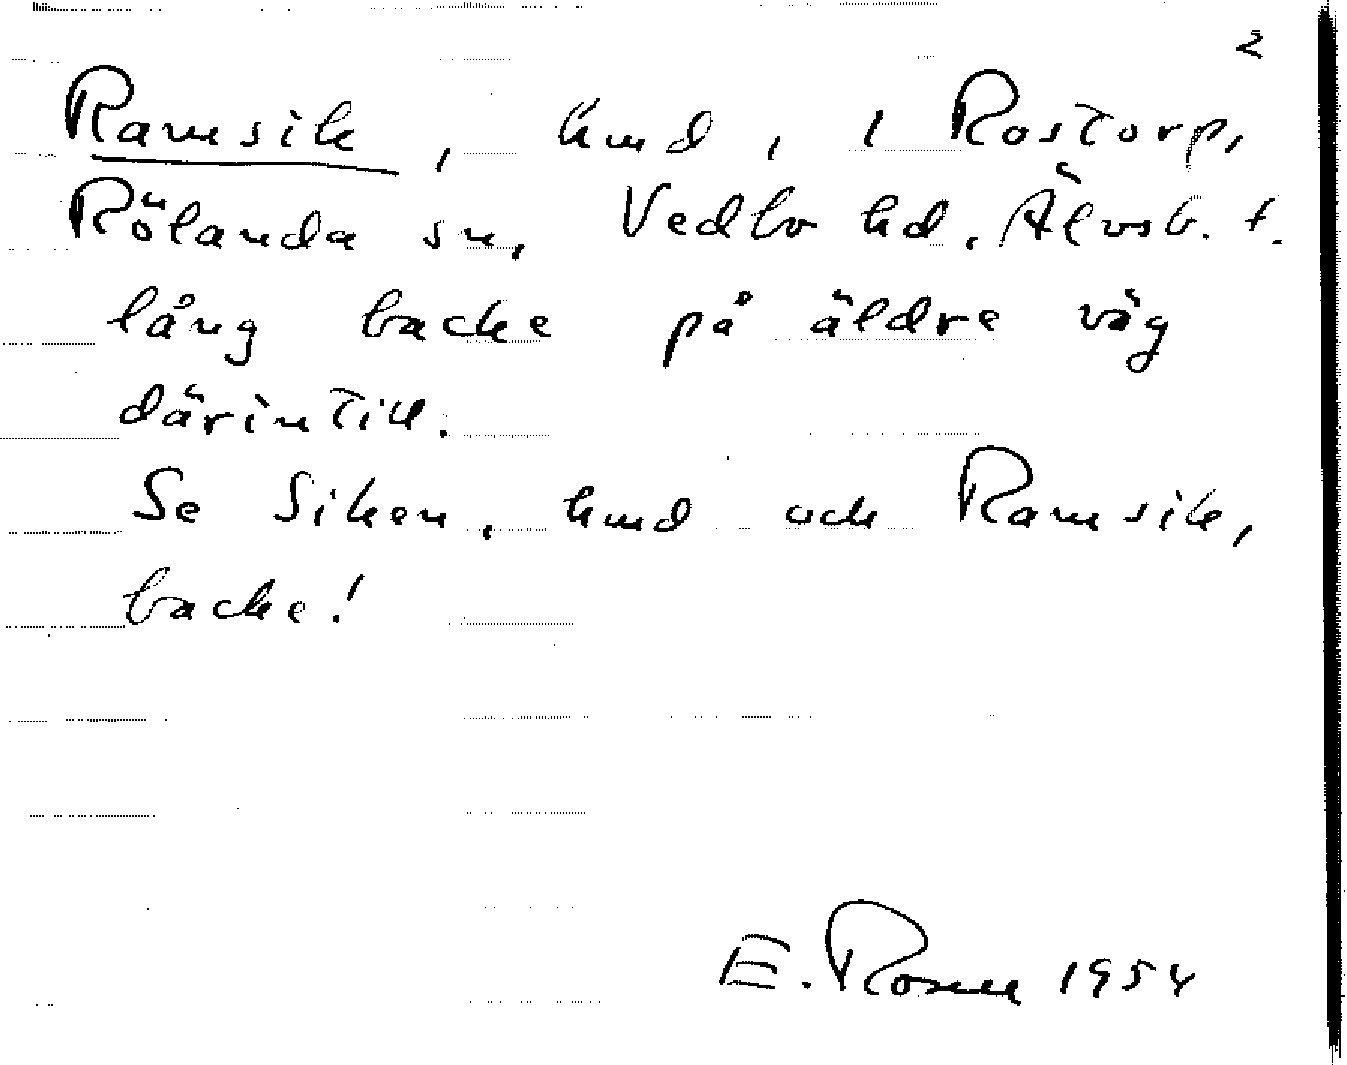 2
Ramsik, hmd, i Rostorp,
Rölanda sn, Vedbo hd. Älvsb. l.
lång backe på äldre väg
därintill.
Se Siken, hmd och Ramsik,
backe!
E. Rosell 1954